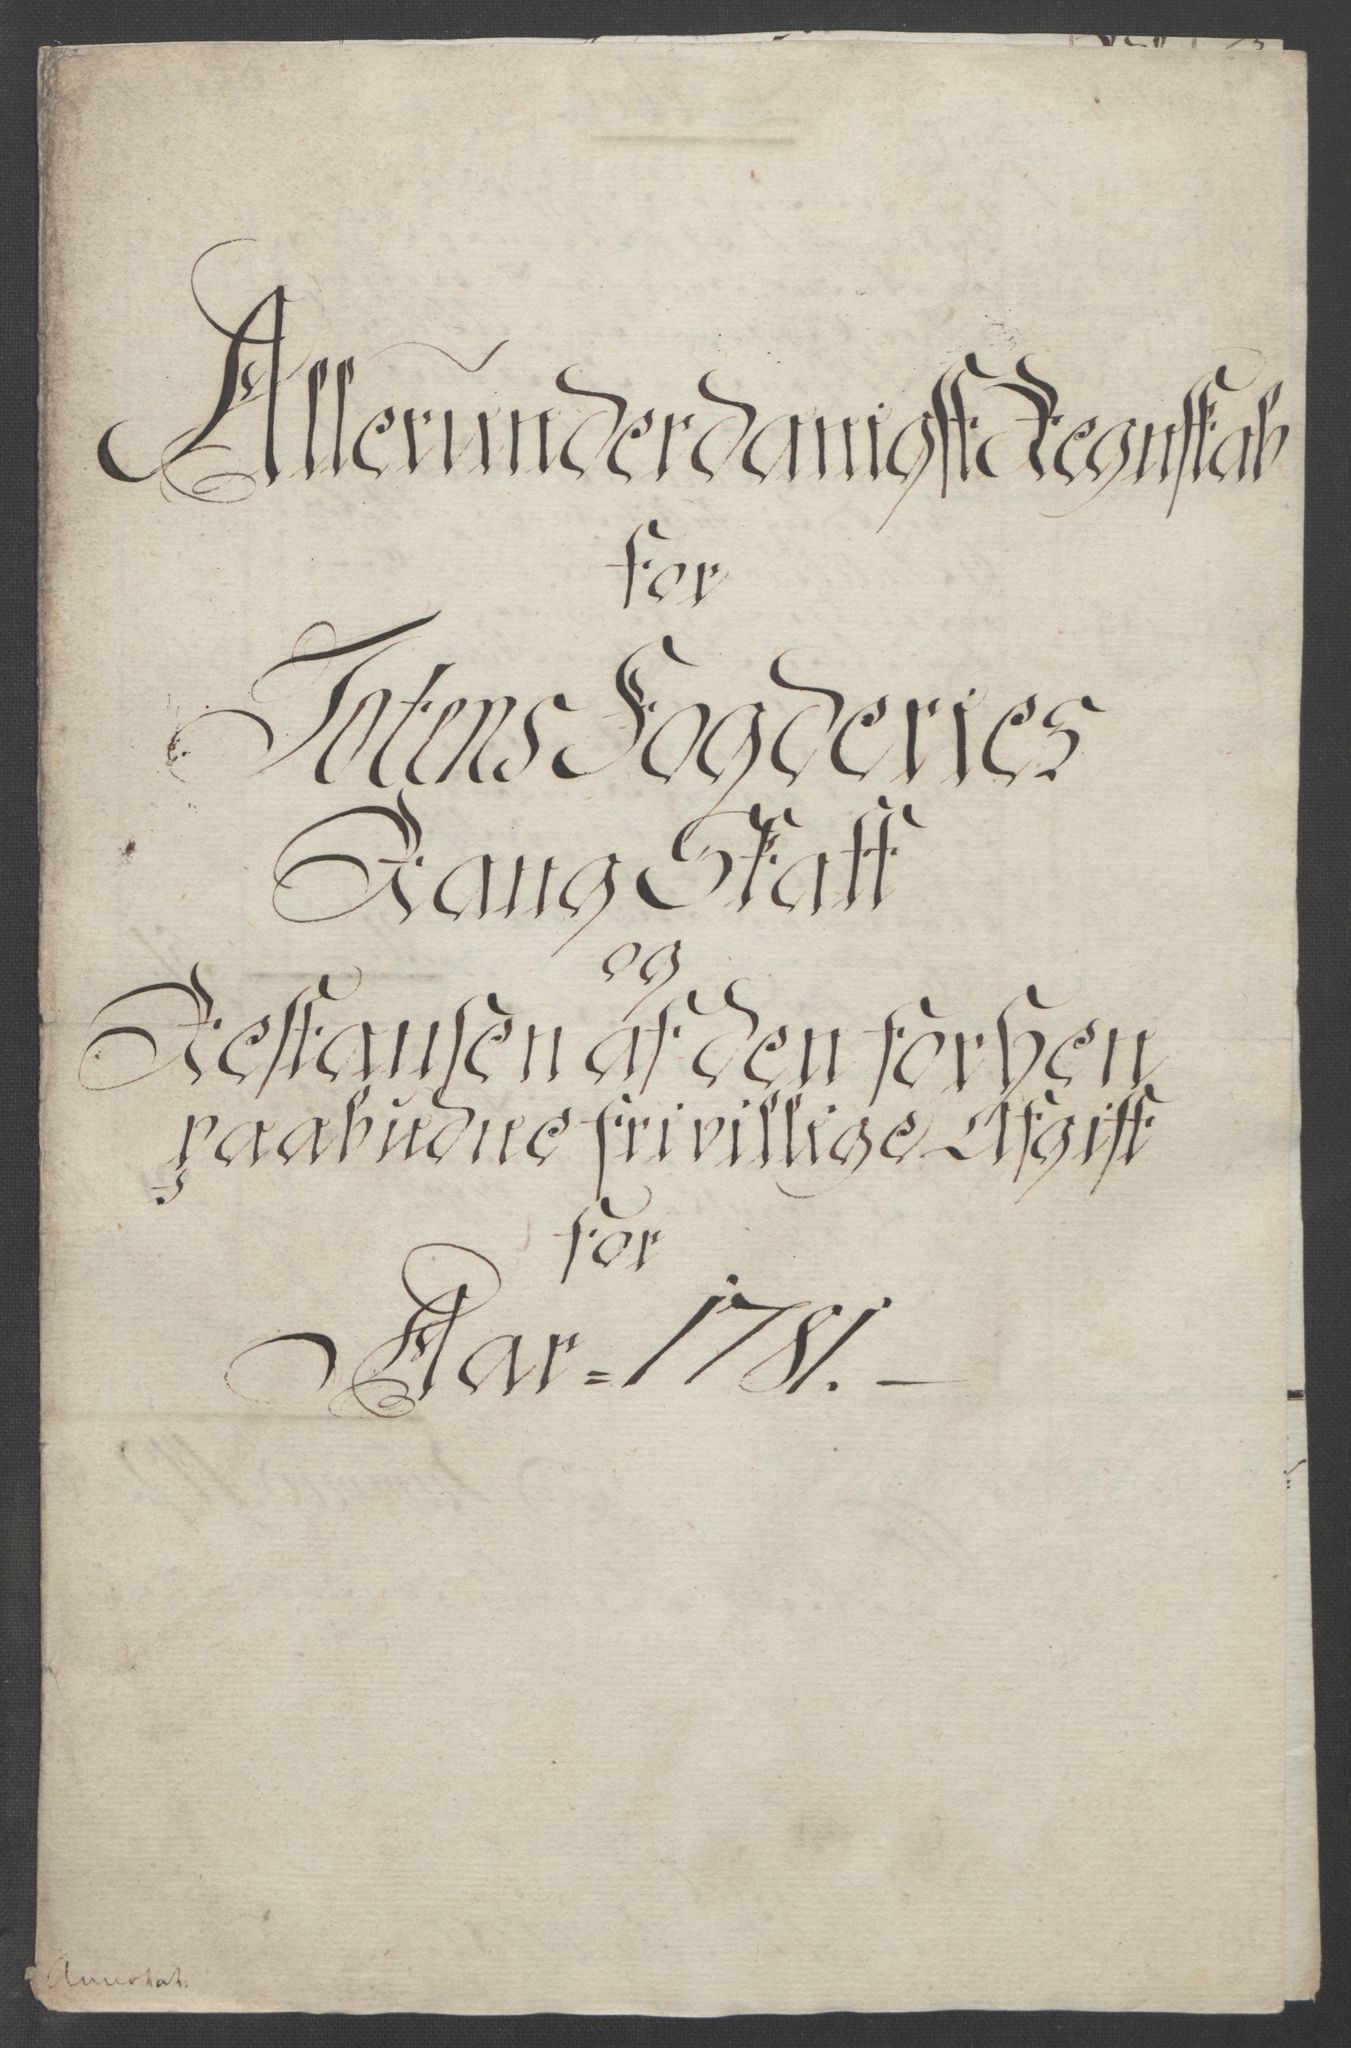 Allerunderdanigst Regnskab
for
Totens Fogderies
Rang Skatt
og
Restansen af den forhen
paabudne frivillige Afgift
for
Aar = 1781. —